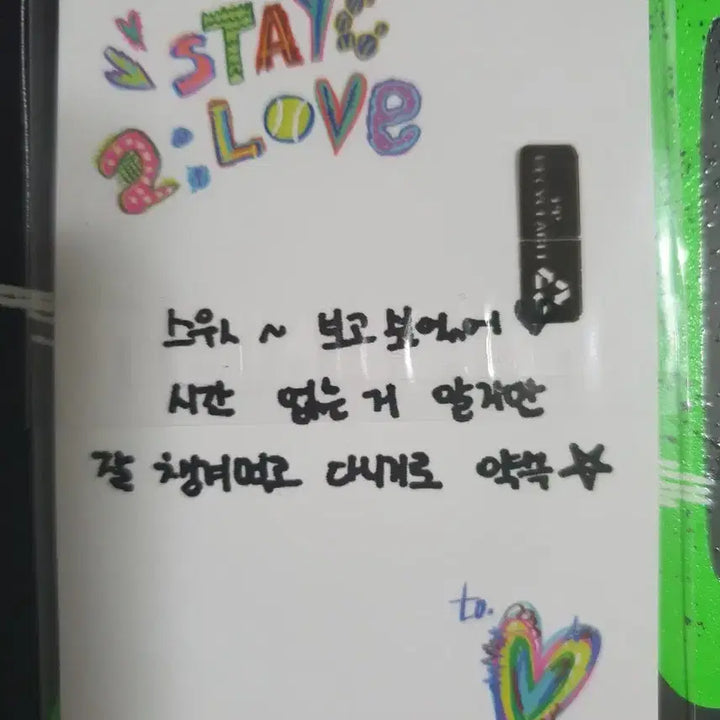 STAYC
2:LOVE
스윗 ~ 보고 보었어
시간 없는 거 알지만
잘 챙겨먹고 다시기로 약속☆
to.